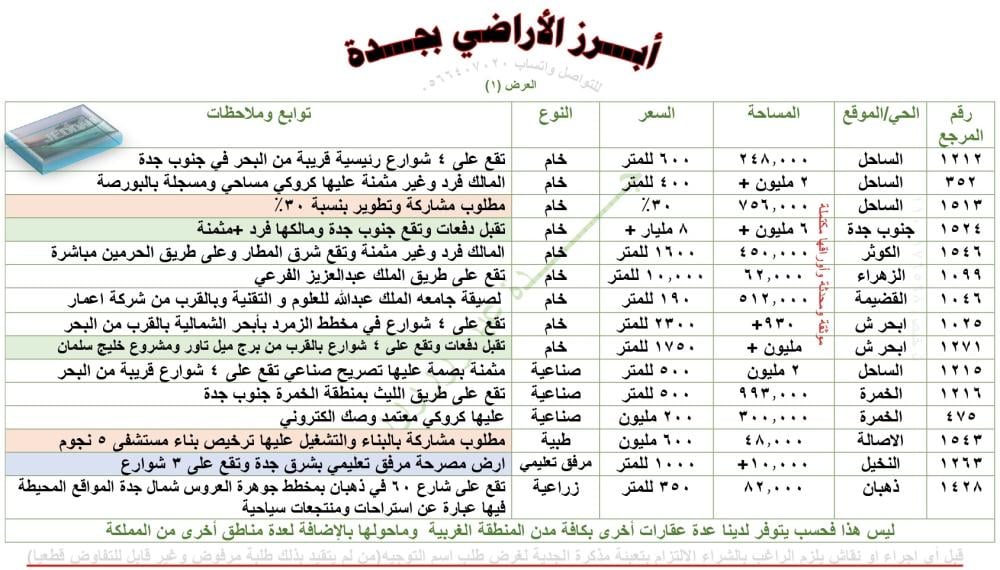 أبرز الأراضي بجدة
للتواصل واتساب ٠٥٦٦٤٠٧٠٢٠
العرض (١)
رقم المرجع الحي/الموقع المساحة السعر النوع توابع وملاحظات
١٢١٢ الساحل ٢٤٨,٠٠٠ ٦٠٠ للمتر خام تقع على ٤ شوارع رئيسية قريبة من البحر في جنوب جدة
٣٥٢ الساحل ٢ مليون + ٤٠٠ للمتر خام المالك فرد وغير مثمنة عليها كروكي مساحي ومسجلة بالبورصة
١٥١٣ الساحل ٧٥٦,٠٠٠ ٣٠٪ خام مطلوب مشاركة وتطوير بنسبة ٣٠٪
١٥٢٤ جنوب جدة ٦ مليون + ٨ مليار + خام تقبل دفعات وتقع جنوب جدة ومالكها فرد +مثمنة
١٥٤٦ الكوثر ٤٥٠,٠٠٠ ١٦٠٠ للمتر خام المالك فرد وغير مثمنة وتقع شرق المطار وعلى طريق الحرمين مباشرة
١٠٩٩ الزهراء ٦٢,٠٠٠ ١٠,٠٠٠ للمتر خام تقع على طريق الملك عبدالعزيز الفرعي
١٠٤٦ القضيمة ٥١٢,٠٠٠ ١٩٠ للمتر خام لصيقة جامعه الملك عبدالله للعلوم و التقنية وبالقرب من شركة اعمار
١٠٢٥ ابحر ش ٩٣٠+ ٢٣٠٠ للمتر خام تقع على ٤ شوارع في مخطط الزمرد بأبحر الشمالية بالقرب من البحر
١٢٧١ ابحر ش مليون + ١٧٥٠ للمتر خام تقبل دفعات وتقع على ٤ شوارع بالقرب من برج ميل تاور ومشروع خليج سلمان
١٢١٥ الساحل ٢ مليون ٥٠٠ للمتر صناعية مثمنة بصمة عليها تصريح صناعي تقع على ٤ شوارع قريبة من البحر
١٢١٦ الخمرة ٩٩٣,٠٠٠ ٥٠٠ للمتر صناعية تقع على طريق الليث بمنطقة الخمرة جنوب جدة
٤٧٥ الخمرة ٣٠٠,٠٠٠ ٢٠٠ مليون صناعية عليها كروكي معتمد وصك الكتروني
١٥٤٣ الاصالة ٤٨,٠٠٠ ٦٠٠ مليون طبية مطلوب مشاركة بالبناء والتشغيل عليها ترخيص بناء مستشفى ٥ نجوم
١٢٦٣ النخيل ١٠,٠٠٠+ ١٠٠٠ للمتر مرفق تعليمي ارض مصرحة مرفق تعليمي بشرق جدة وتقع على ٣ شوارع
١٤٢٨ ذهبان ٨٢,٠٠٠ ٣٥٠ للمتر زراعية تقع على شارع ٦٠ في ذهبان بمخطط جوهرة العروس شمال جدة المواقع المحيطة
فيها عبارة عن استراحات ومنتجعات سياحية
موثقة ومحدثة وأوراقها مكتملة
ليس هذا فحسب يتوفر لدينا عدة عقارات أخرى بكافة مدن المنطقة الغربية وماحولها بالإضافة لعدة مناطق أخرى من المملكة
قبل أي اجراء او نقاش يلزم الراغب بالشراء الالتزام بتعبئة مذكرة الجدية لغرض طلب اسم التوجيه(من لم يتقيد بذلك طلبة مرفوض وغير قابل للتفاوض قطعيا)